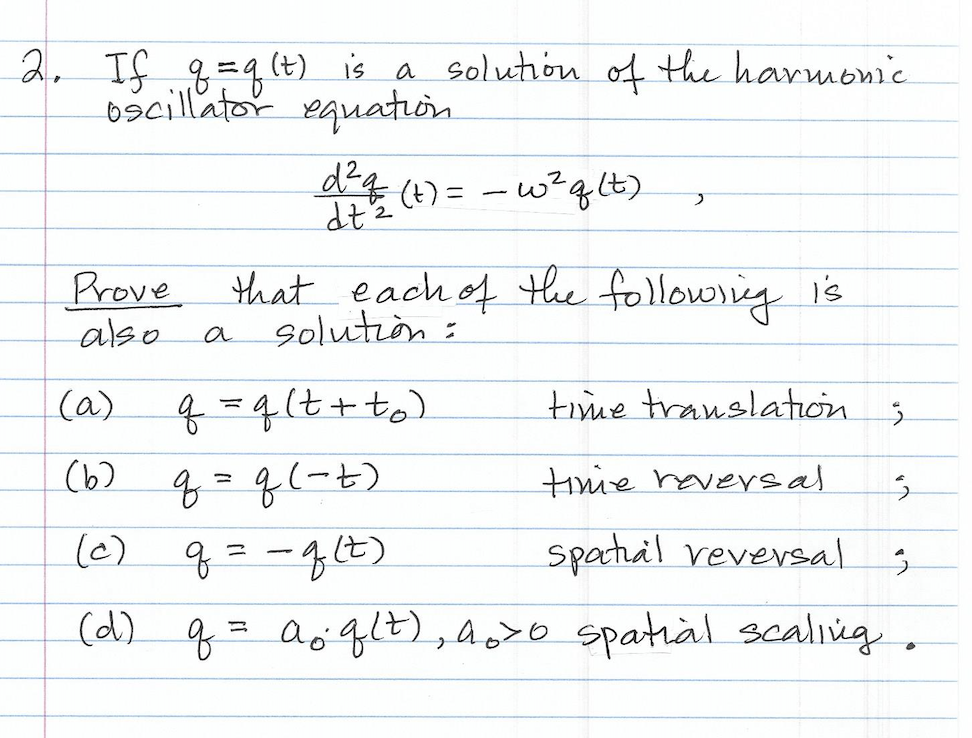 2. If q = q(t) is a solution of the harmonic
oscillator equation
d²q/dt² (t) = - ω² q(t) ,
Prove that each of the following is
also a solution :
(a) q = q(t + t₀) time translation ;
(b) q = q(-t) time reversal ;
(c) q = - q(t) spatial reversal ;
(d) q = a₀·q(t), a₀>0 spatial scaling .